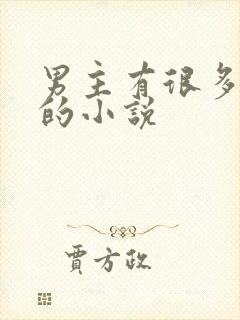 男主有很多
的小说
贾方政